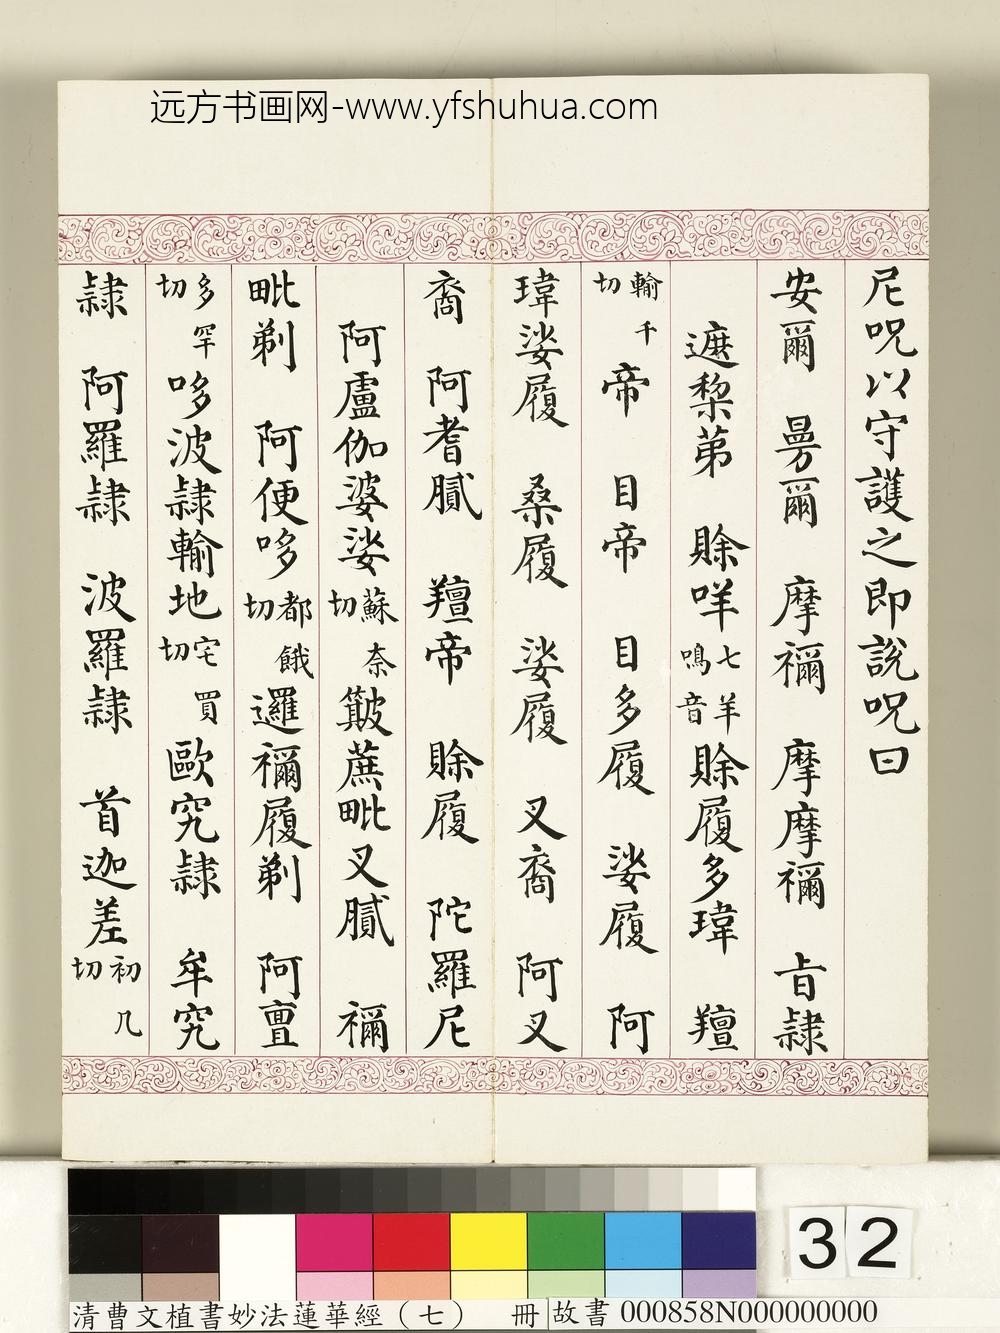 远方书画网-www.yfshuhua.com
尼呪以守護之即說呪曰
安爾 曼爾 摩禰 摩摩禰 旨隸
遮棃第 賒咩七羊鳴音賒履多瑋 羶
輸千切帝 目帝 目多履 娑履 阿
瑋娑履 桑履 娑履 叉裔 阿叉
裔 阿耆膩 羶帝 賒履 陀羅尼
阿盧伽婆娑蘇奈切簸蔗毗叉膩 禰
毗剃 阿便哆都餓切邏禰履剃 阿亶
多罕切哆波隸輸地宅買切歐究隸 牟究
隸 阿羅隸 波羅隸 首迦差初几切
32
清曹文植書妙法蓮華經（七） 冊 故書 000858N000000000